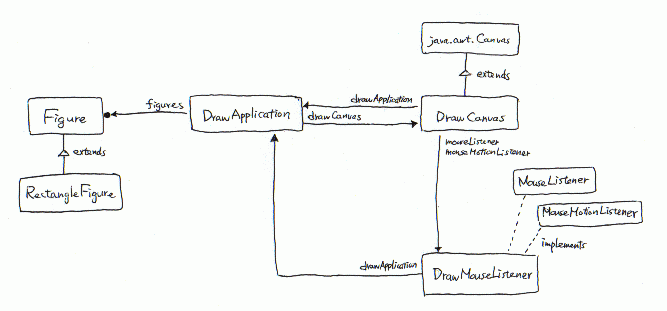 java.awt.Canvas
extends
figures
drawApplication
Figure
DrawApplication
drawCanvas
DrawCanvas
extends
mouseListener
mouseMotionListener
RectangleFigure
MouseListener
MouseMotionListener
implements
drawApplication
DrawMouseListener